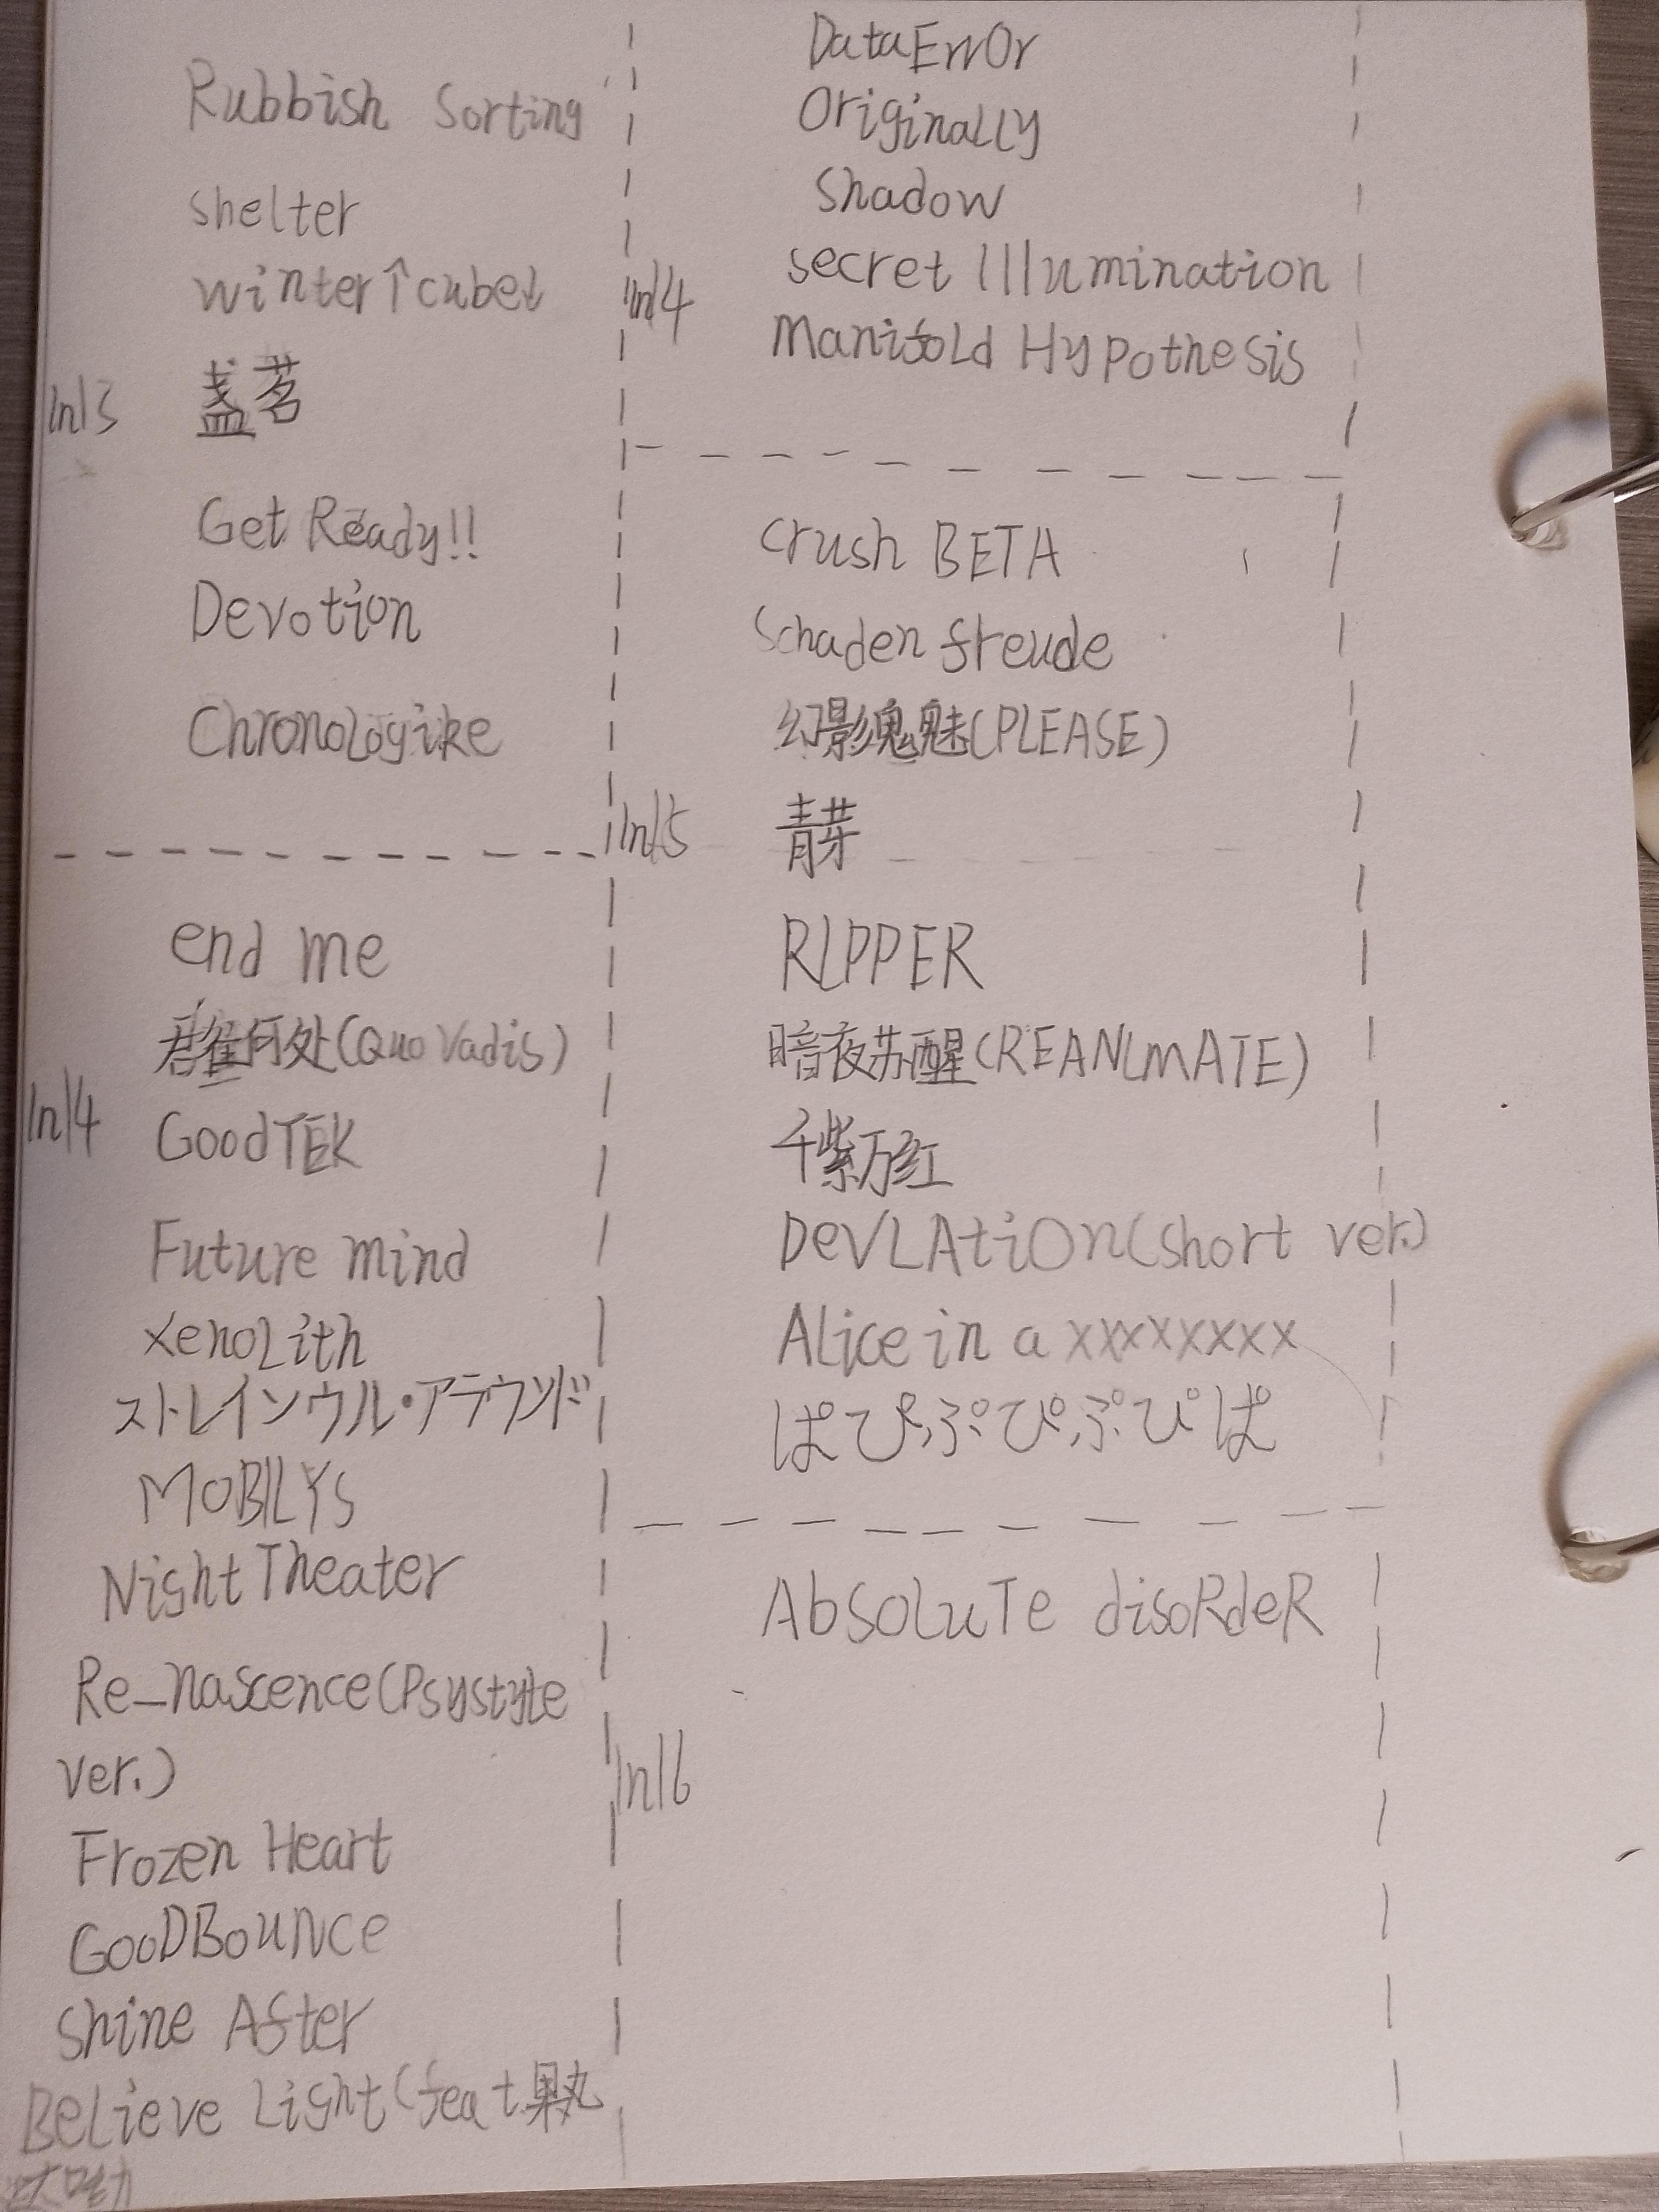 Rubbish Sorting
shelter
winter↑cube↓
In13 盏茗
Get Ready!!
Devotion
Chronologike
end me
君往何处(Quo Vadis)
In14
GoodTEK
Future mind
xenoLith
ストレインウル・アラウンド
MOBILYS
Night Theater
Re_nascence(Psystyle
ver.)
Frozen Heart
GooDBouNce
shine After
BeLieve Light(feat.
DataErr0r
OriginaLLy
Shadow
secret Illumination
In14
ManifoLd Hypothesis
crush BETA
Schadenfreude
幻影魂魅(PLEASE)
In15 青芽
RLPPER
暗夜苏醒(REANLMATE)
千紫万红
DeVLAtiOn(short ver.)
ALice in a xxxxxxxx
ぱぴぷぴぷぴぱ
AbSoLuTe disoRdeR
In16